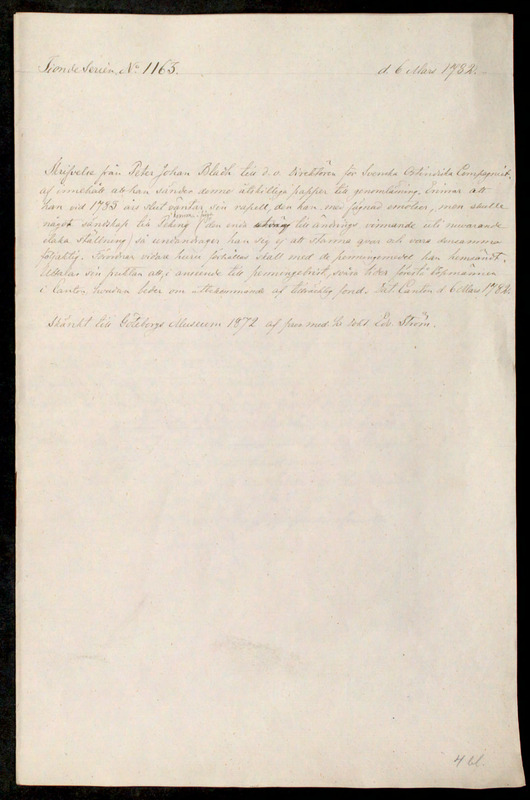 Tionde Serien, No 1165. d. 6 Mars 1782.
Skrifvelse från Peter Johan Bladh till d. v. Direktören för Svenska Ostindiska Compagniet,
af innehåll att han sänder denne åtskilliga papper till genomläsning. Tviflar att
han vid 1783 års slut väntar sin rapell, den han med fägnad emotser, men skulle
något sändskap till Peking finna för den mid till ändrings vinnande uti nuvarande
elaka ställning, så undandrager han sig ej att stanna qvar och vara densamma
följaktig. Fordrar vidare huru förhållas skall med de penningemedel han hemsändt.
Uttalar sin puttan att, i anseende till penningebrist, svåra tider förestå köpmännen
i Canton, hvadan beder om utkommande af tillräcklig fond. Dat. Canton d. 6 Mars 1782.
Skänkt till Göteborgs Museum 1872 af fru med. dr Edv. Ström.
4 bl.